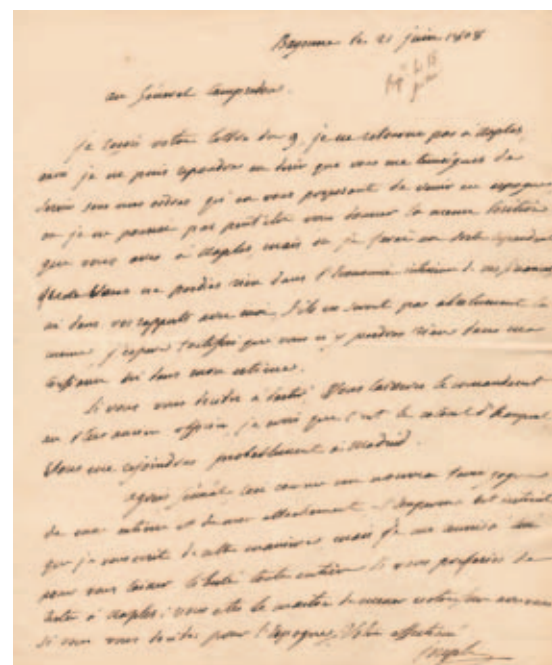 Bayonne le 21 juin 1808
au Général Campredon.
je reçois votre lettre du 9, je ne retourne pas à Naples
ainsi je ne puis répondre au désir que vous me témoignez de
servir sous mes ordres qu'en vous proposant de venir en espagne
où je ne pourrai pas peut être vous donner la même
que vous avez à Naples, mais où je ferai en sorte cependant
que vous ne perdiez rien dans
ni dans vos rapports avec moi, s'ils ne sont pas absolument les
mêmes j'espère que vous n'y perdrez rien dans ma
confiance ni dans mon estime.
Si vous vous décidez à partir vous laisserez le commandement
au plus ancien officier, je crois que c'est le colonel
Vous me rejoindrez probablement à Madrid.
agréez comme un nouveau gage
de mon estime et de mon attachement l'empereur est instruit
que je vous écris de cette manière mais je me
pour vous laisser liberté toute entière si vous préférez de
rester à Naples: vous êtes le maître de
si vous vous décidez pour l'espagne. Votre affectionné
Joseph